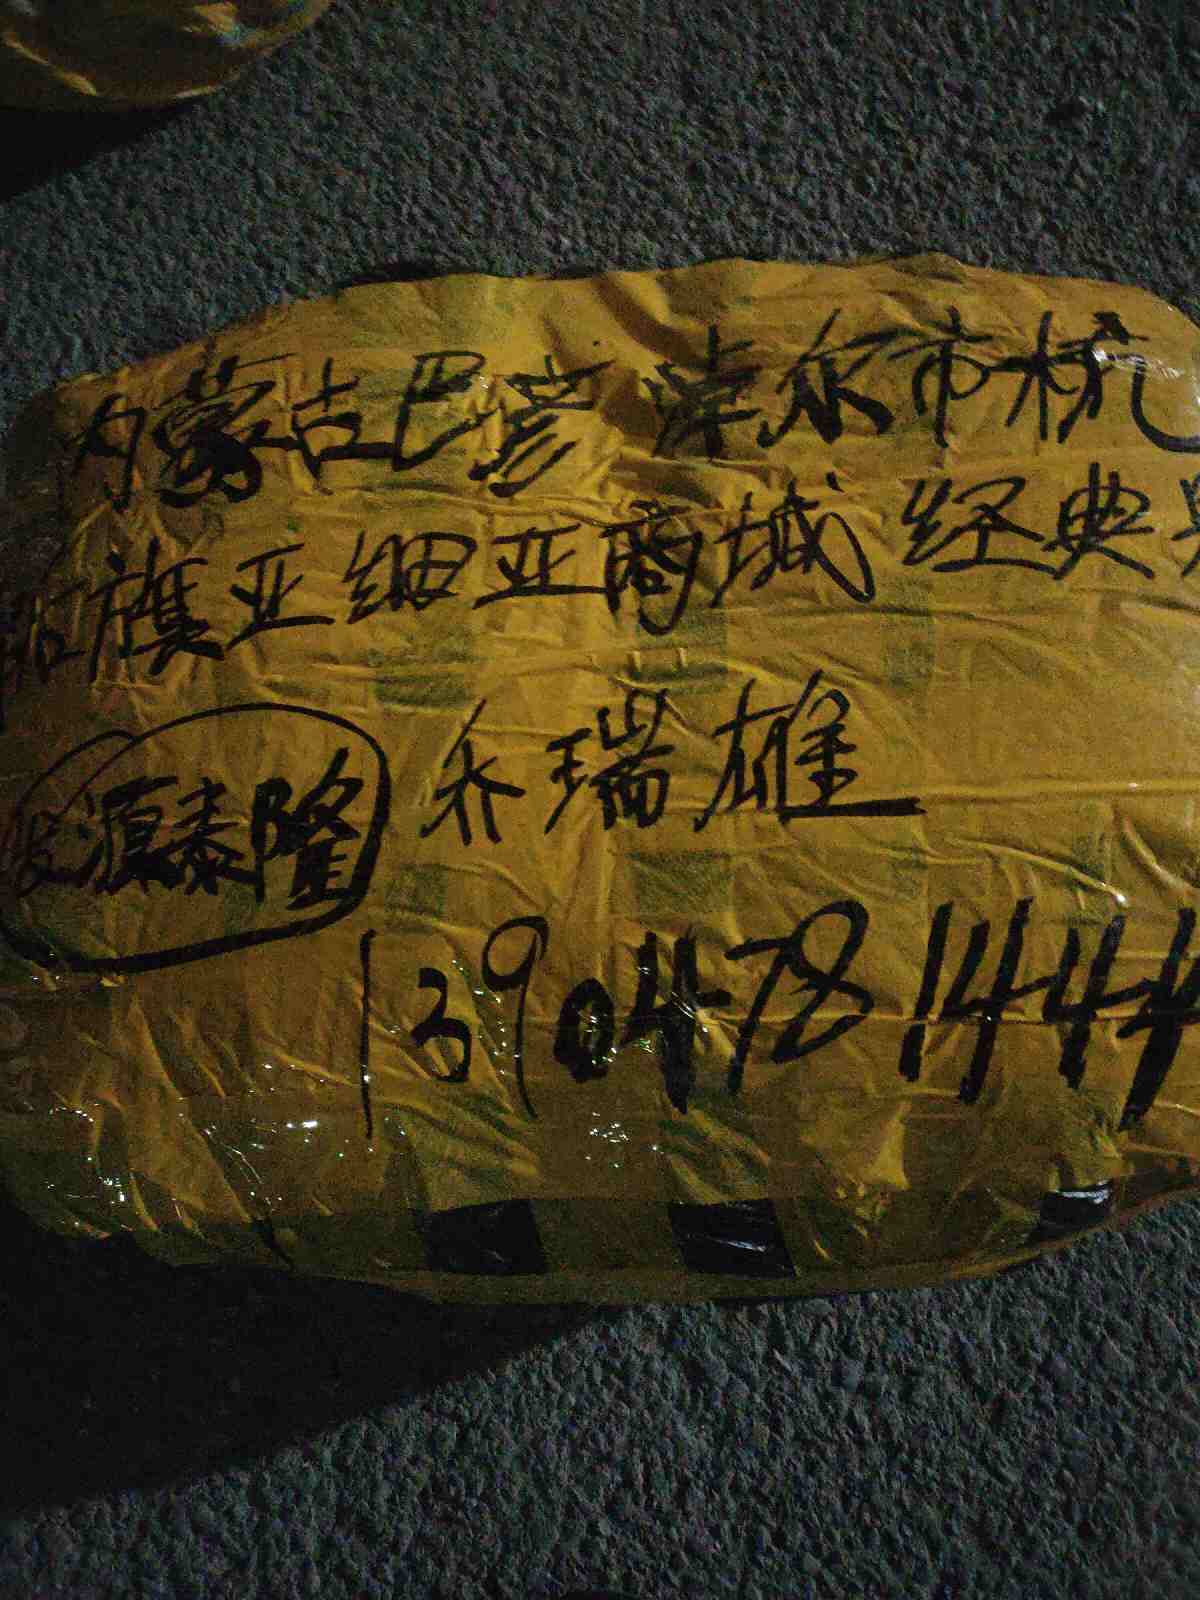 内蒙古巴彦淖尔市杭
后旗亚细亚商城经典
发源泰隆 乔瑞雄
13904781444